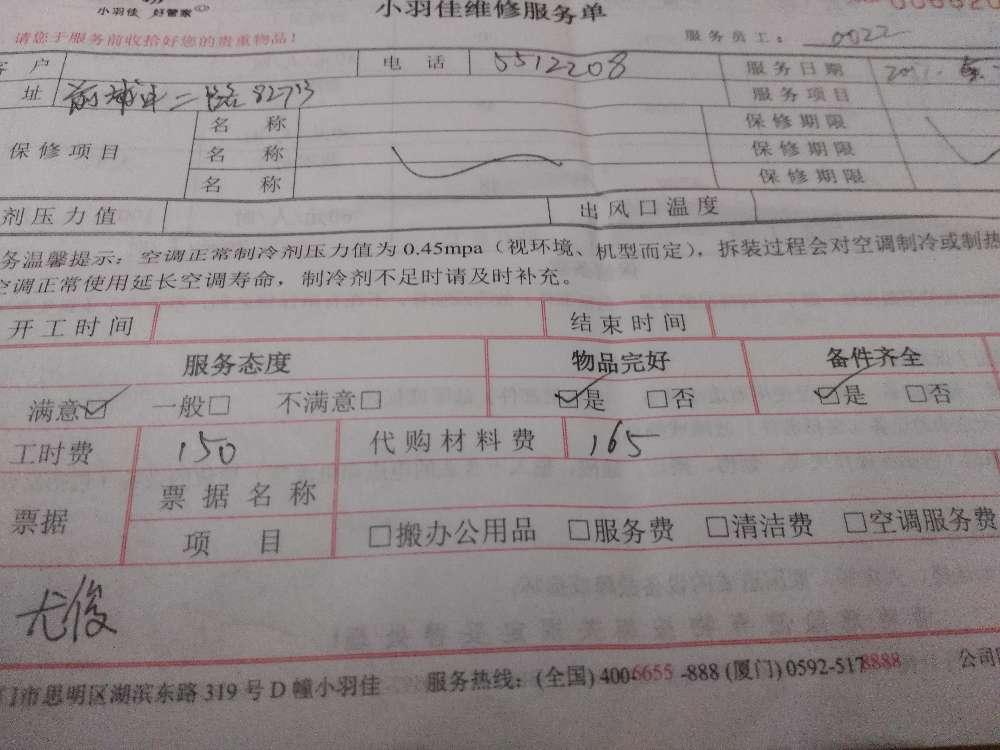 小羽佳 好管家
小羽佳维修服务单
请您于服务前收拾好您的贵重物品!
服务员工: 0022
客户 电话 5512208 服务日期
址 服务项目
保修项目 名称 保修期限
名称 保修期限
名称 保修期限
剂压力值 出风口温度
务温馨提示:空调正常制冷剂压力值为0.45mpa(视环境、机型而定),拆装过程会对空调制冷或制热
空调正常使用延长空调寿命,制冷剂不足时请及时补充。
开工时间 结束时间
服务态度 物品完好 备件齐全
满意☑ 一般□ 不满意□ ☑是 □否 ☑是 □否
工时费 150 代购材料费 165
票据 票据名称
项目 □搬办公用品 □服务费 □清洁费 □空调服务费
尤俊
门市思明区湖滨东路319号D幢小羽佳 服务热线:(全国)4006655-888(厦门)0592-5178888 公司